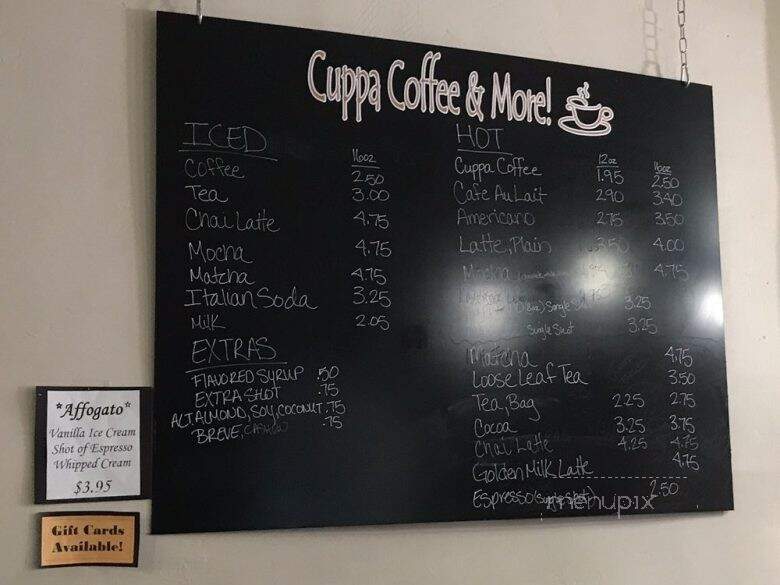 Cuppa Coffee & More!
ICED
16oz
Coffee 2.50
Tea 3.00
Chai Latte 4.75
Mocha 4.75
Matcha 4.75
Italian Soda 3.25
Milk 2.05
EXTRAS
FLAVORED SYRUP .50
EXTRA SHOT .75
ALT. ALMOND, SOY, COCONUT .75
BREVE, .75
HOT
12oz 16oz
Cuppa Coffee 1.95 2.50
Cafe Au Lait 2.90 3.40
Americano 2.75 3.50
Latte, Plain 3.50 4.00
Mocha 4.75
Single 3.25
Single Shot 3.25
Matcha 4.75
Loose Leaf Tea 3.50
Tea, Bag 2.25 2.75
Cocoa 3.25 3.75
Chai Latte 4.25 4.75
Golden Milk Latte 4.75
Espresso 2.50
*Affogato*
Vanilla Ice Cream
Shot of Espresso
Whipped Cream
$3.95
Gift Cards
Available!
menupix